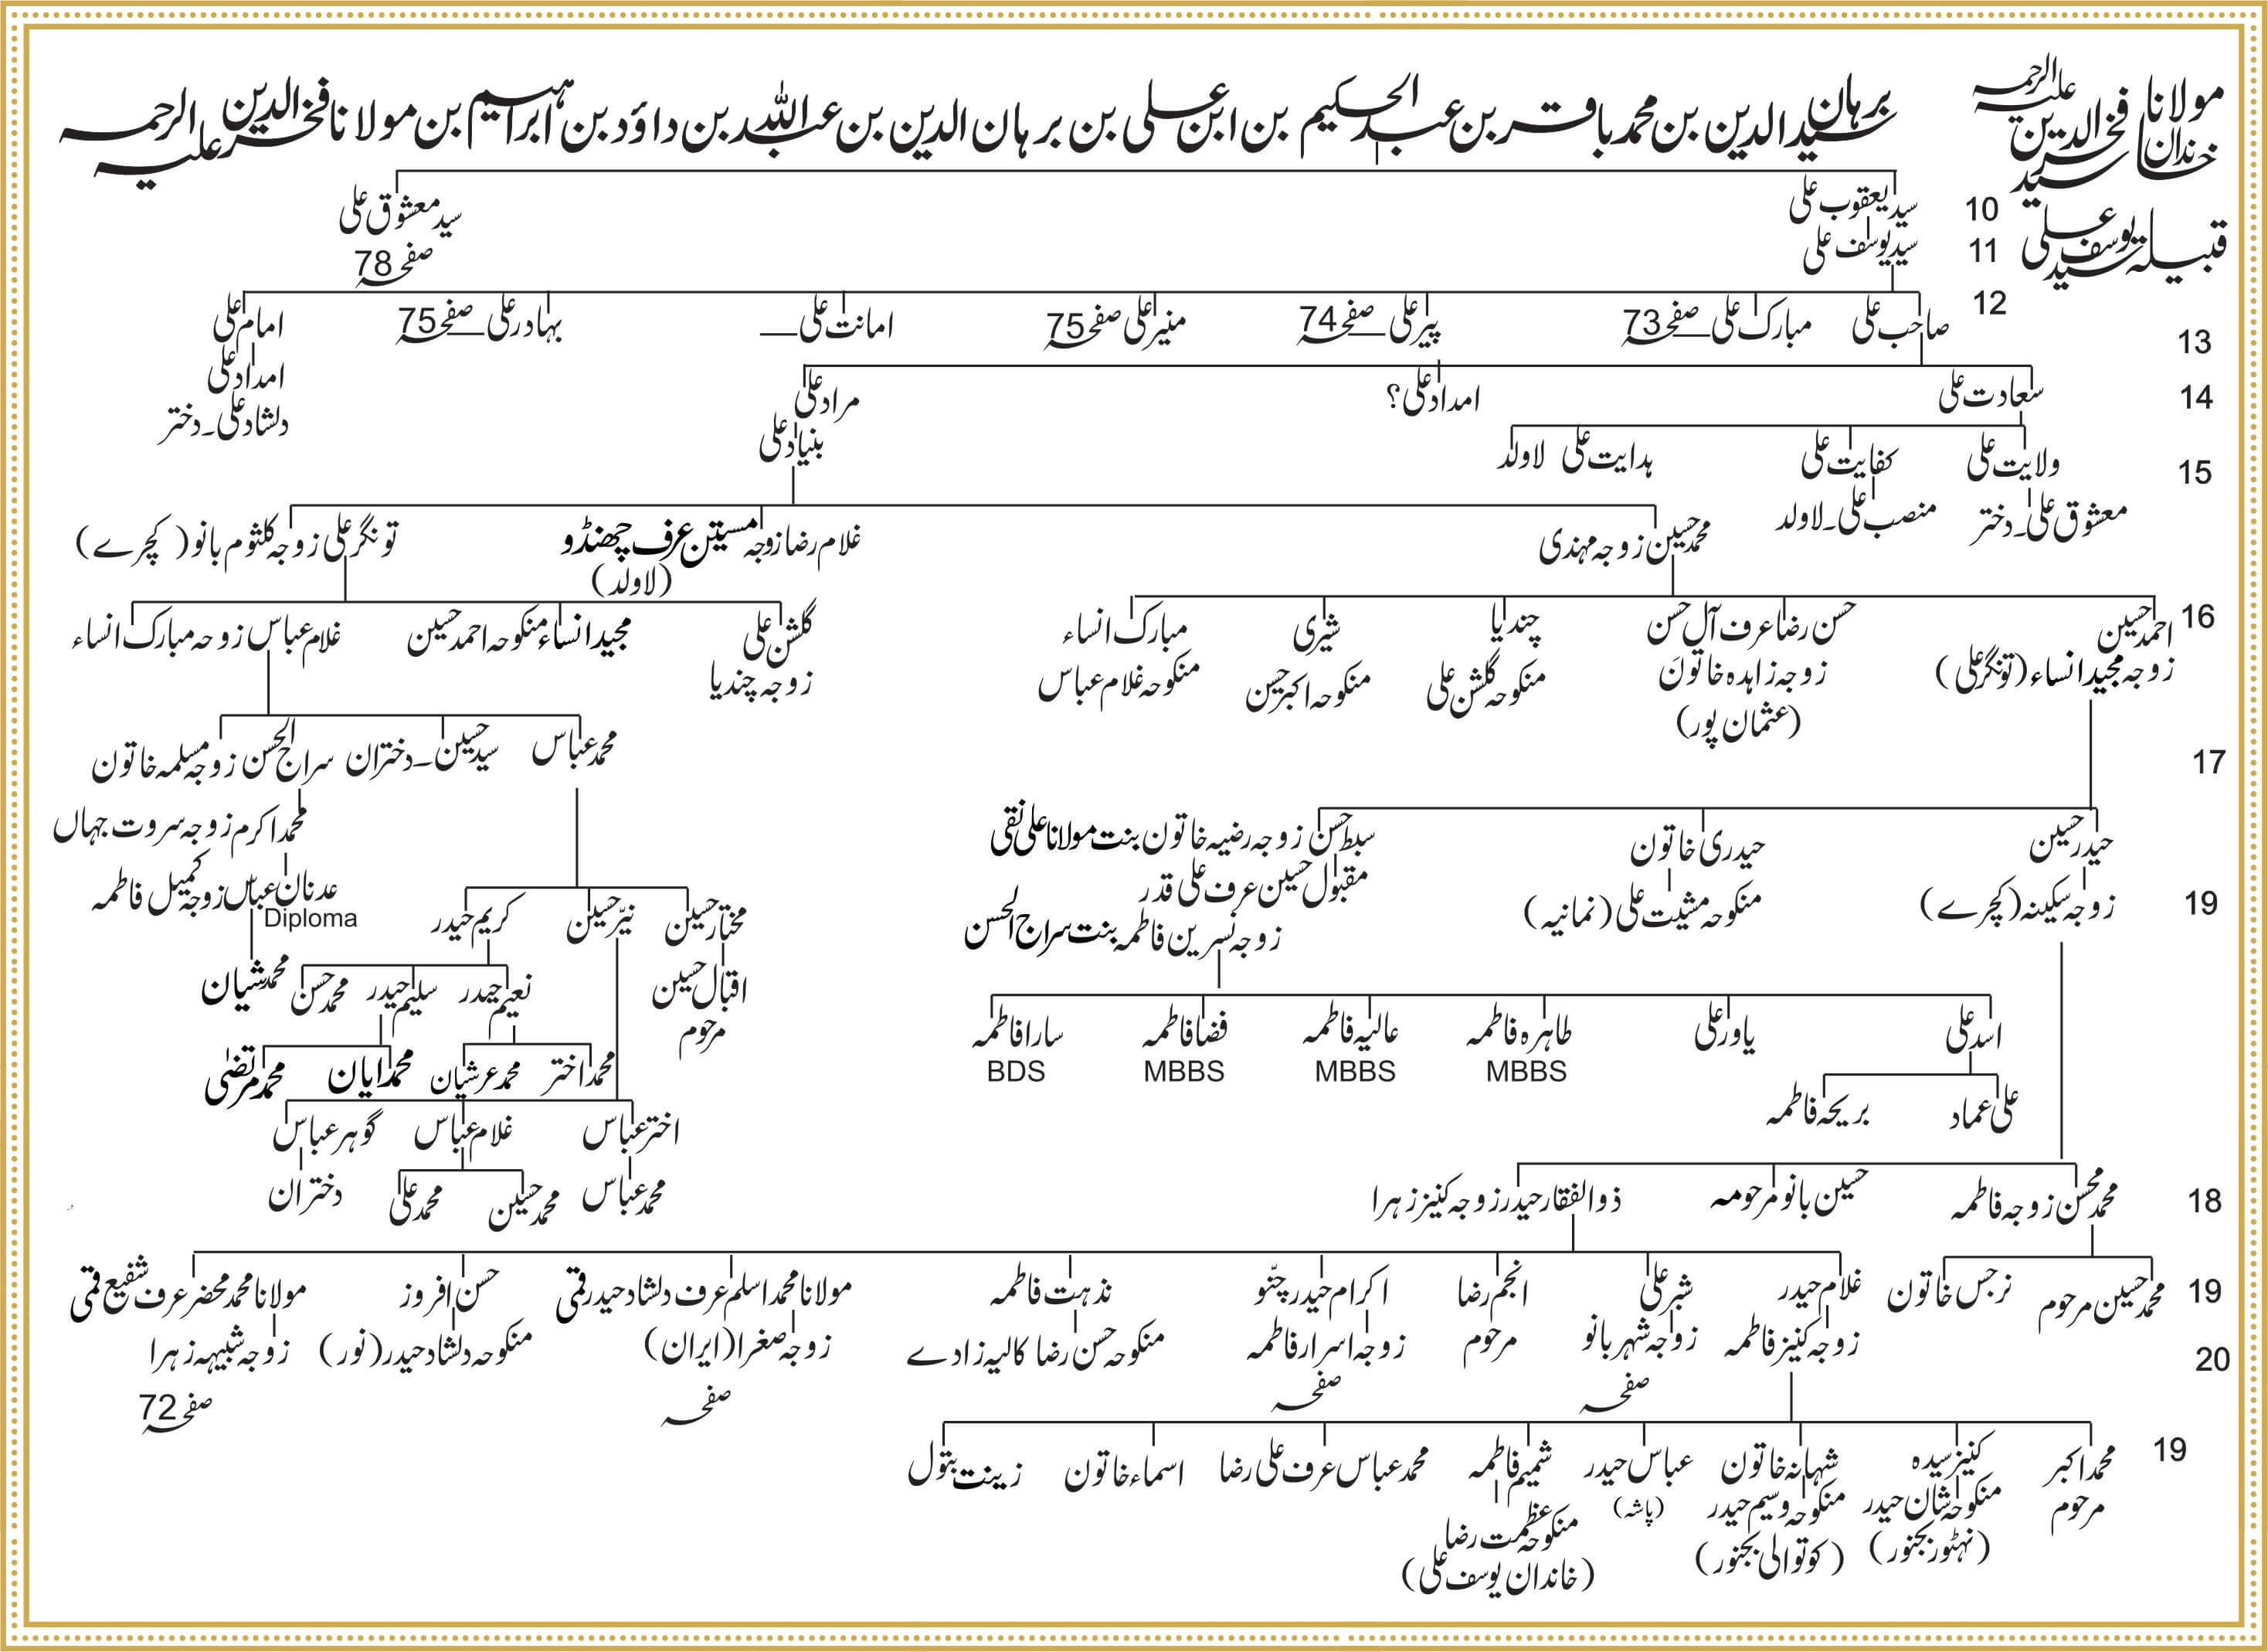 مولانا فخرالدین علیہ الرحمہ
خاندان سید
قبیلہ سید یوسف علی
سید برہان الدین بن محمد باقر بن عبدالحکیم بن ابن علی بن برہان الدین بن عبداللہ بن داؤد بن ابراہیم بن مولانا فخرالدین علیہ الرحمہ
10 سید یعقوب علی سید معشوق علی
صفحہ 78
11 سید یوسف علی
12 صاحب علی مبارک علی صفحہ 73 پیر علی صفحہ 74 منیر علی صفحہ 75 امانت علی بہادر علی صفحہ 75 امام علی
13
امداد علی
دلشاد علی۔دختر
14 سعادت علی امداد علی؟ مراد علی
بنیاد علی
15 ولایت علی کفایت علی ہدایت علی لاولد
معشوق علی۔دختر منصب علی۔لاولد
محمد حسین زوجہ مہندی غلام رضا زوجہ مسیتن عرف چھنڈو تونگر علی زوجہ کلثوم بانو (کچرے)
(لاولد)
16 احمد حسین حسن رضا عرف آل حسن چندیا شبری مبارک انساء گلشن علی مجید انساء منکوحہ احمد حسین غلام عباس زوجہ مبارک انساء
زوجہ مجید انساء (تونگر علی) زوجہ زاہدہ خاتون منکوحہ گلشن علی منکوحہ اکبر حسن منکوحہ غلام عباس زوجہ چندیا
(عثمان پور)
17 محمد عباس سید حسین۔دختران سراج الحسن زوجہ مسلمہ خاتون
محمد اکرم زوجہ سروت جہاں
حیدر حسین حیدری خاتون سبط حسن زوجہ رضیہ خاتون بنت مولانا علی نقی
مقبول حسین عرف علی قدر
عدنان عباس زوجہ کمیل فاطمہ
Diploma
19 زوجہ سکینہ (کچرے) منکوحہ مشیت علی (نمانیہ) زوجہ نسرین فاطمہ بنت سراج الحسن
مختار حسین نیّر حسین کریم حیدر
اقبال حسین نعیم حیدر سلیم حیدر محمد حسن محمد شیان
مرحوم
اسد علی یاور علی طاہرہ فاطمہ عالیہ فاطمہ فضا فاطمہ سارا فاطمہ
MBBS MBBS MBBS BDS
محمد اختر محمد عرشیان محمد ایان محمد مرتضیٰ
علی عماد بریحہ فاطمہ
اختر عباس غلام عباس گوہر عباس
محمد عباس محمد حسین محمد علی دختران
18 محمد محسن زوجہ فاطمہ حسین بانو مرحومہ ذوالفقار حیدر زوجہ کنیز زہرا
19 محمد حسین مرحوم نرجس خاتون غلام حیدر شبر علی انجم رضا اکرام حیدر چنّو نذہت فاطمہ مولانا محمد اسلم عرف دلشاد حیدر قمی حسن افروز مولانا محمد محضر عرف شفیع قمی
20 زوجہ کنیز فاطمہ زوجہ شہر بانو مرحوم زوجہ اسرار فاطمہ منکوحہ حسن رضا کالیہ زادے زوجہ صغرا (ایران) منکوحہ دلشاد حیدر (نور) زوجہ شبیہہ زہرا
صفحہ صفحہ صفحہ صفحہ 72
19 محمد اکبر کنیز سیدہ شہانہ خاتون عباس حیدر شمیم فاطمہ محمد عباس عرف علی رضا اسماء خاتون زینت بتول
مرحوم منکوحہ شان حیدر منکوحہ وسیم حیدر (پاشہ) منکوحہ عظمت رضا
(نہٹور بجنور) (کوتوالی بجنور) (خاندان یوسف علی)